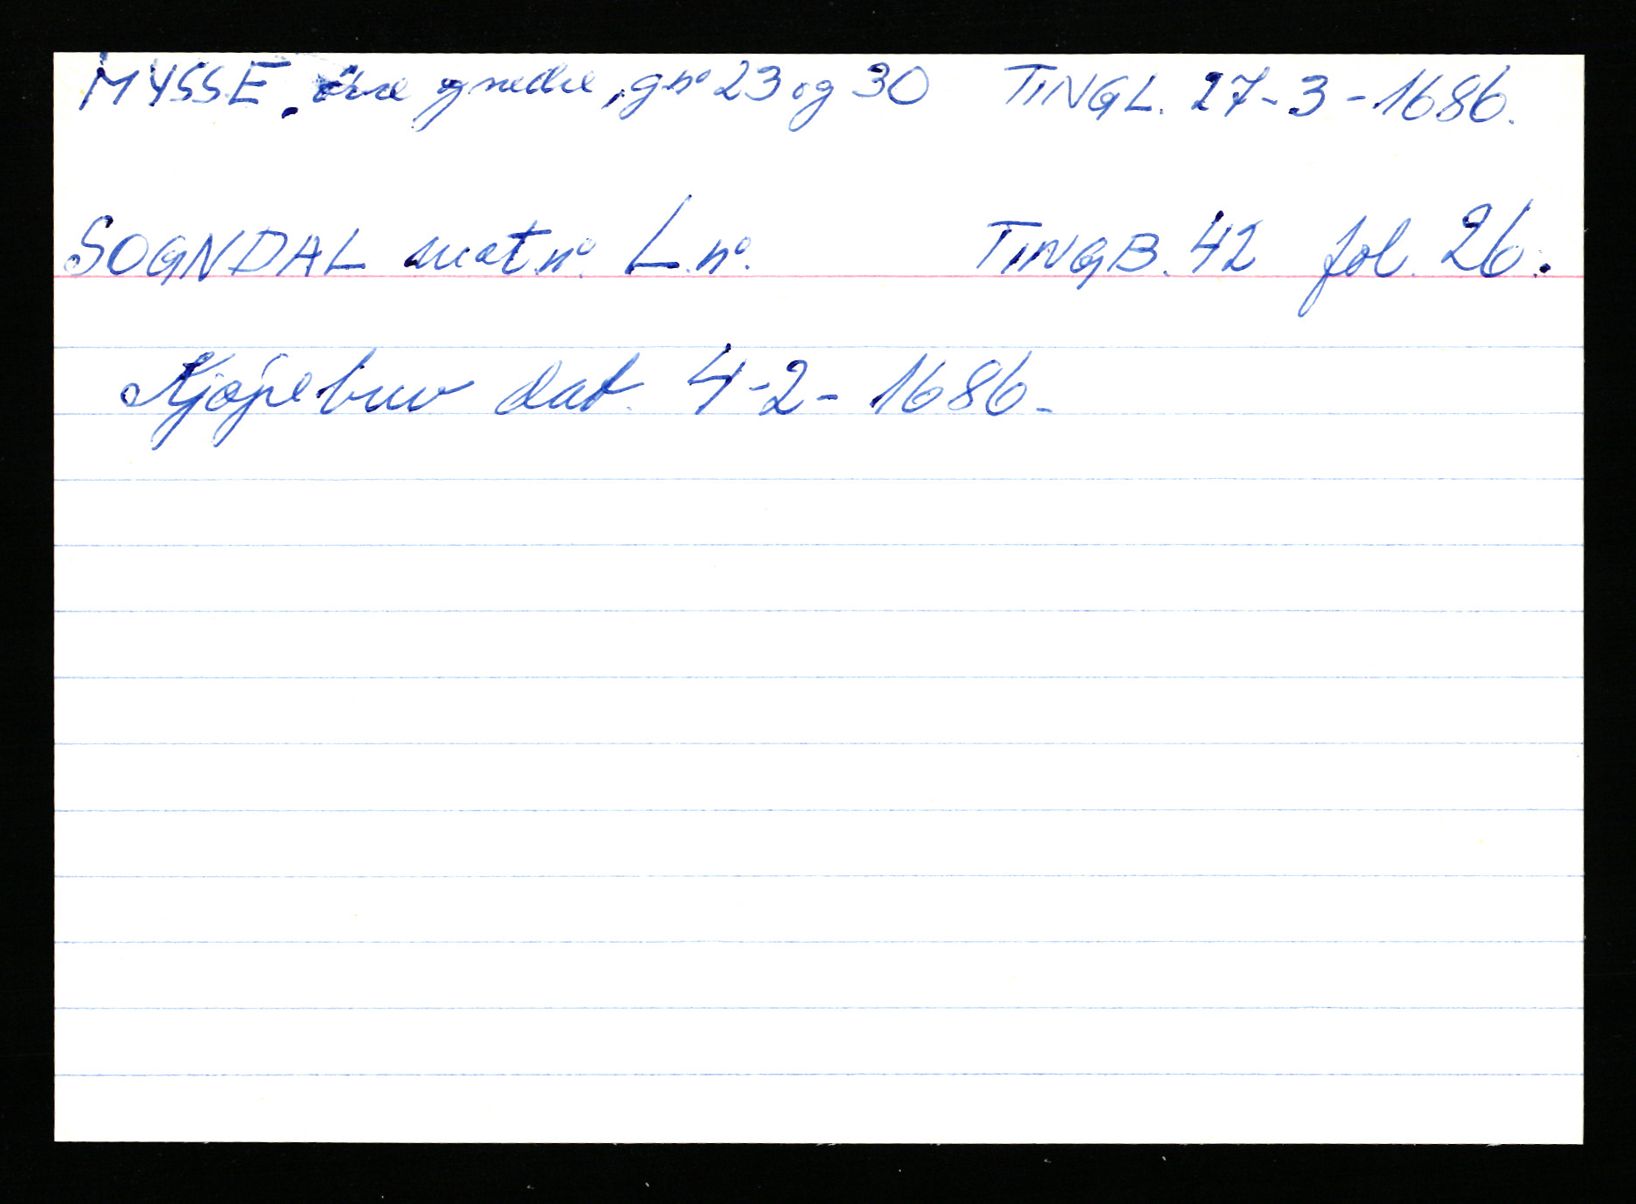 MYSSE. øvre og nedre, gnº 23 og 30 TINGL. 27-3-1686.
SOGNDAL mat.nº. L.nº. TINGB. 42 fol. 26.
Kjøpebrev dat. 4-2-1686.